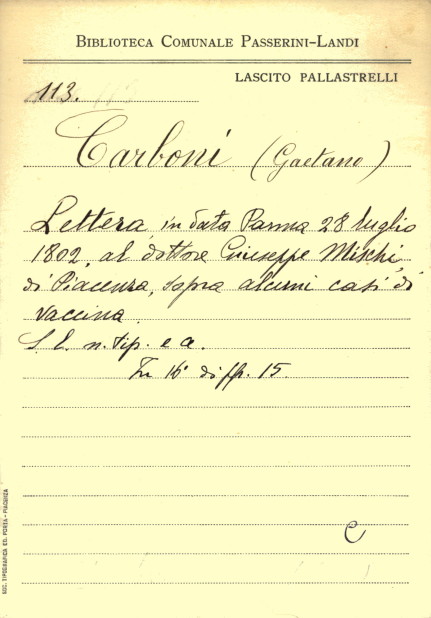 BIBLIOTECA COMUNALE PASSERINI-LANDI
LASCITO PALLASTRELLI
113.
Carboni (Gaetano)
Lettera, in data Parma 28 luglio
1802, al dottore Giuseppe Mischi,
di Piacenza, sopra alcuni casi di
vaccina.
S. l. n. tip. e a.
In 16° di ff. 15.
C
SOC. TIPOGRAFICA ED. PORTA - PIACENZA